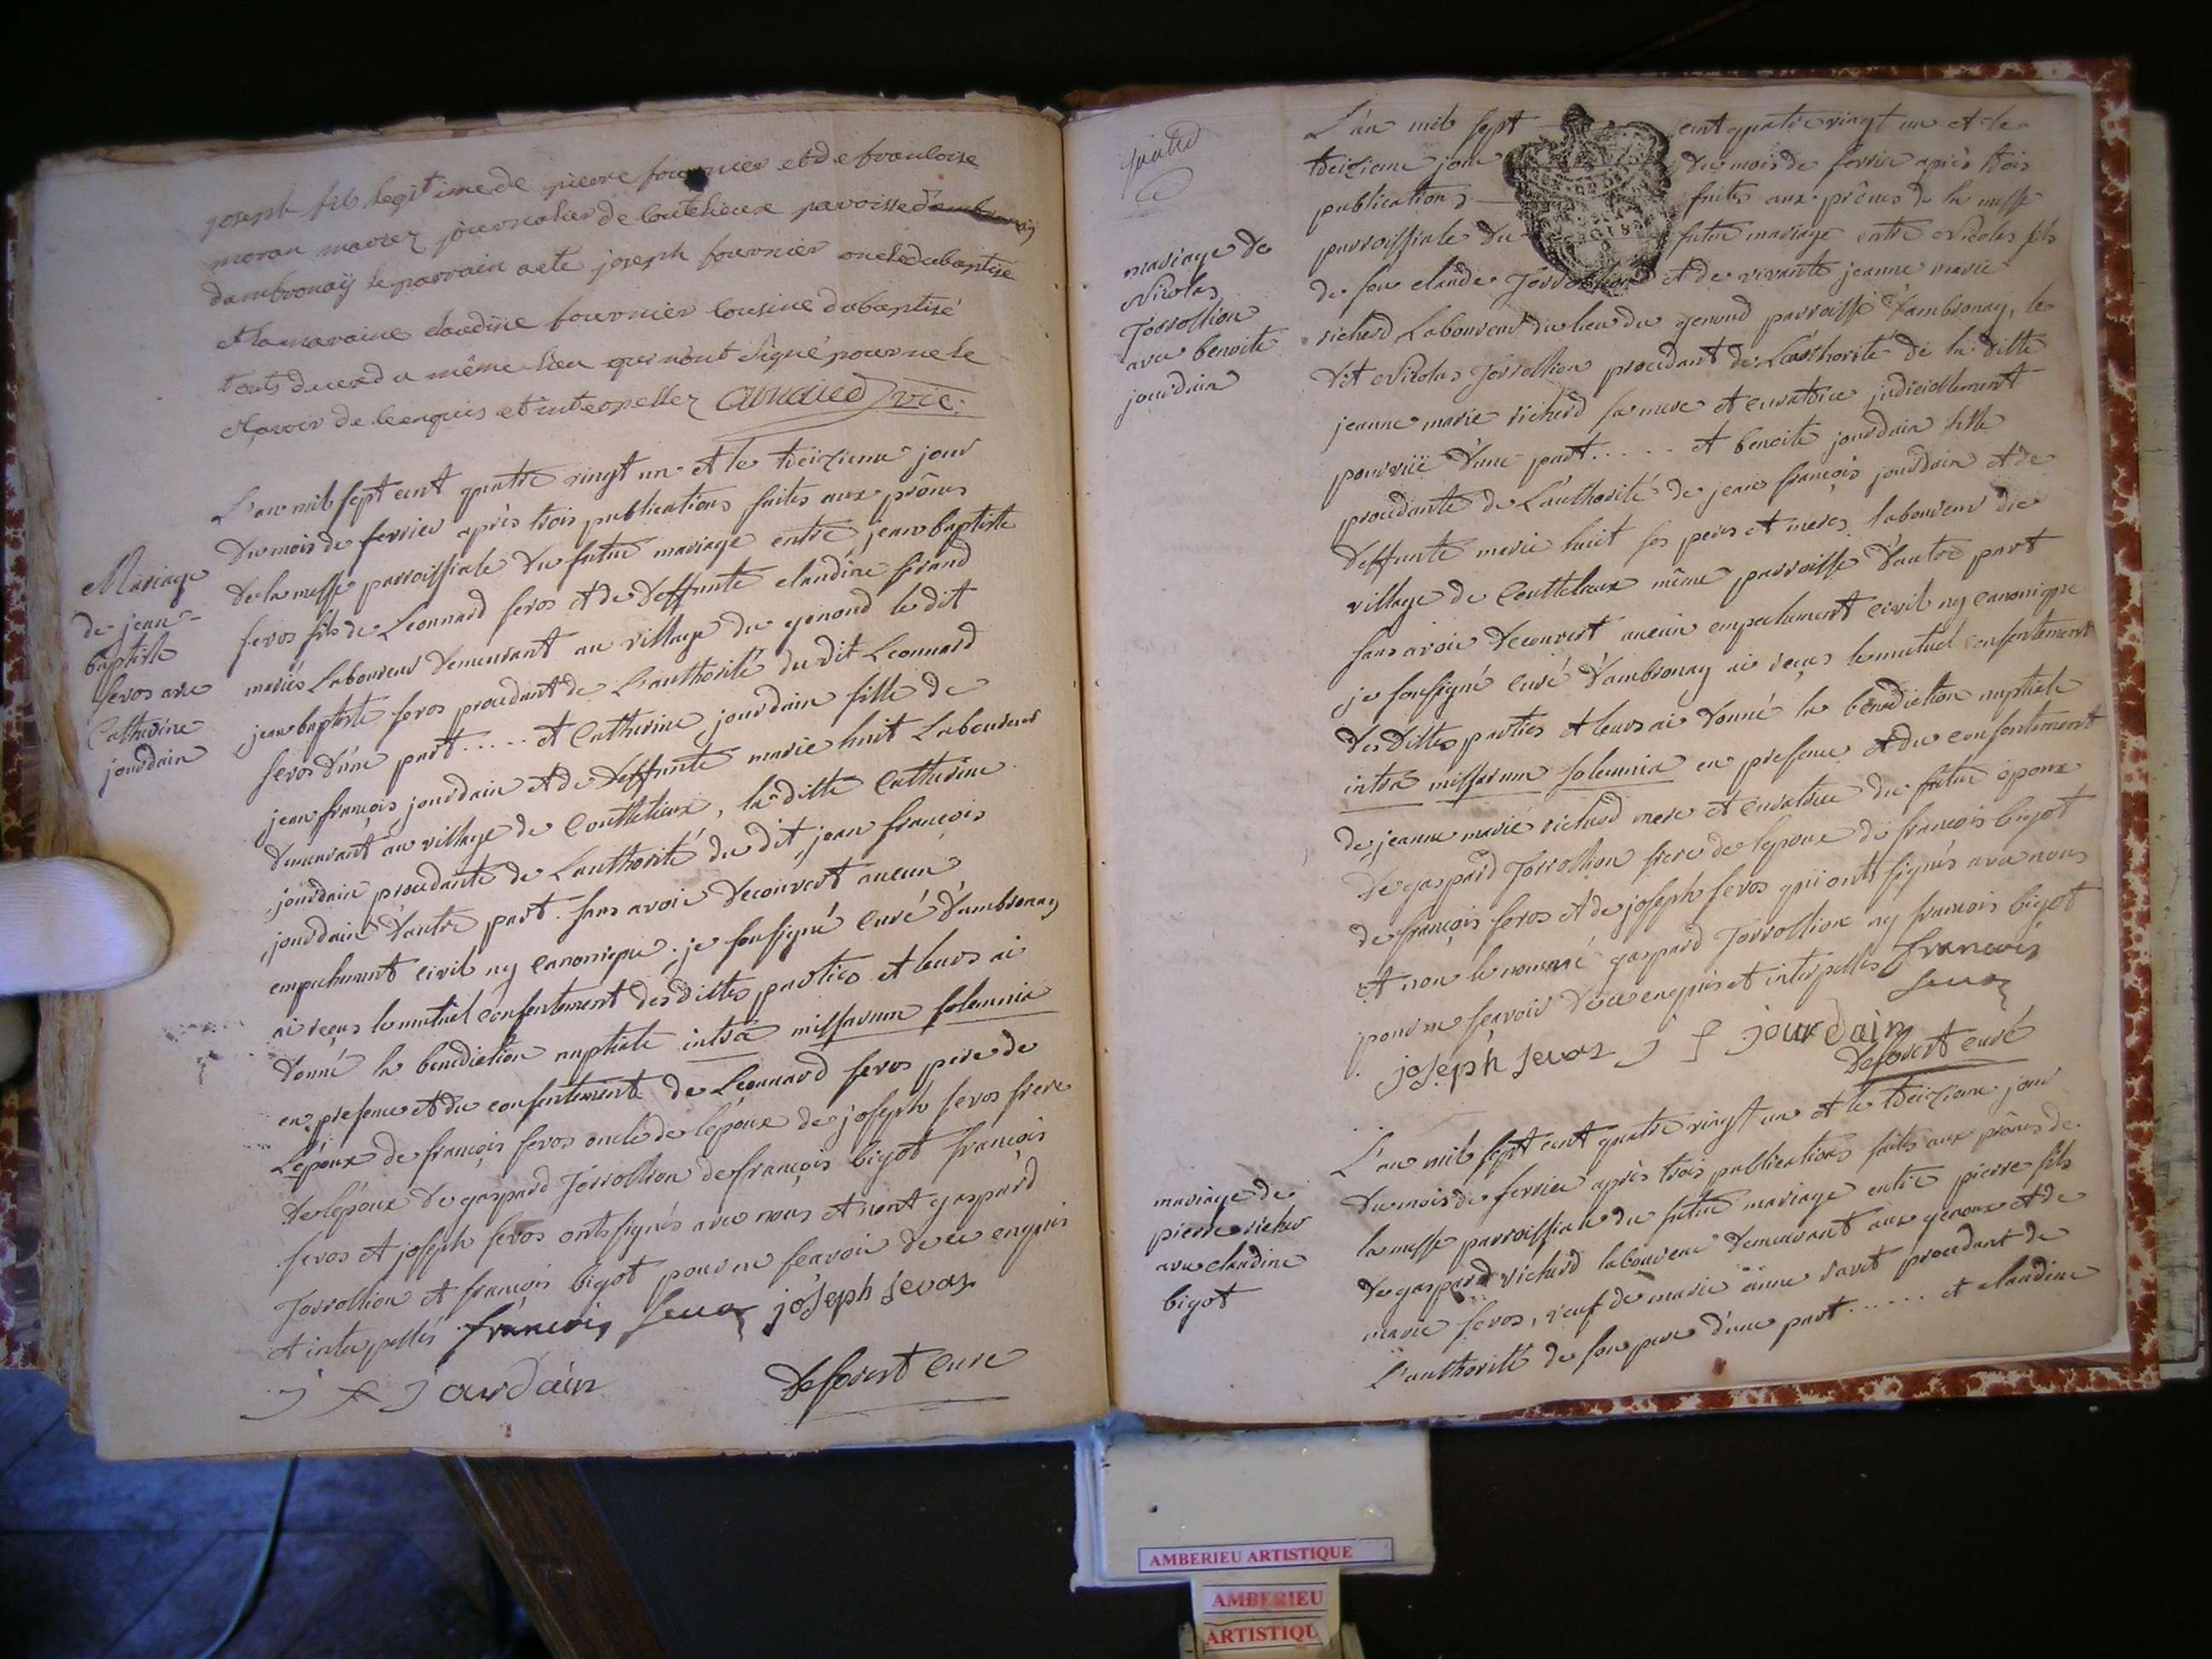 joseph fils legitime de pierre fournier et de francloise
moran mariez journalier de Coutelieux paroisse
dambronaÿ le parrain a ete joseph fournier oncle du baptisé
et la maraine claudine fournier cousine du baptisé
touts deux du même lieu qui n'ont signé pour ne le
sçavoir de ce enquis et interpellez vic.
Mariage
de jean-
baptiste
feros avec
Catherine
jourdain
L'an mil sept cent quatre vingt un et le treizieme jour
Du mois de fevrier après trois publications faites aux prônes
De la messe parroissiale Du futur mariage entre jean baptiste
feros fils de Leonnard feros et de Deffunte claudine
mariés Laboureur Demeurant au village du genoud le dit
jean baptiste feros procedant de L'authorité du dit Leonnard
feros d'une part ..... et Catherine jourdain fille de
jean françois jourdain et de Deffunte marie huit Laboureur
Demeurant au village de Couttelieux, la ditte Catherine
jourdain procedante de L'authorité du dit jean françois
jourdain D'autre part. sans avoir Decouvert aucun
empechement civil ny canonique. je soussigné curé D'ambronay
ai reçus le mutuel consentement des dittes parties et leurs ai
Donné la benediction nuptiale intrà missarum solemnia
en presence et du consentement de Leonnard feros pere de
L'epoux de françois feros oncle de l'époux de joseph feros frere
de l'époux de gaspard Jorrollion de françois bigot françois
feros et joseph feros onts signés avec nous et nont gaspard
Jorrollion et françois bigot pour ne sçavoir de ce enquis
et interpellés françois joseph
j f jourdain
Deforest curé
mariage de
Nicolas
Jorrollion
avec benoite
jourdain
L'an mil sept cent quatre vingt un et le
treizieme jour Du mois de fevrier après trois
publications faites aux prônes de la messe
parroissiale Du futur mariage entre Nicolas fils
de feu claude Jorrollion et de vivante jeanne marie
richerd Laboureur du lieu du genoud parroisse d'ambronay, le
Dit Nicolas Jorrollion procedant de L'authorité de la ditte
jeanne marie richerd sa mere et curatrice judiciellement
pourvüe d'une part ..... et benoite jourdain fille
procedante de L'authorité de jean françois jourdain et de
Deffunte marie huit ses peres et meres laboureur du
village de Couttelieux même parroisse D'autre part
sans avoir Decouvert aucun empechement civil ny canonique
je soussigné curé D'ambronay ai reçus le mutuel consentement
des Dittes parties et leurs ai Donné la bénédiction nuptiale
intrà missarum solemnia en presence et du consentement
de jeanne marie richerd mere et curatrice du futur époux
De gaspard Jorrollion frere de lepoux de françois bigot
de françois feros et de joseph feros qui onts signés avec nous
et non le nommé gaspard Jorrollion ny françois bigot
pour ne sçavoir de ce enquis et interpellés françois
joseph j f jourdain
Deforest curé
mariage de
pierre richer
avec claudine
bigot
L'an mil sept cent quatre vingt un et le treizieme jour
Du mois de fevrier après trois publications faites aux prônes de
la messe parroissiale du futur mariage entre pierre fils
De gaspard richerd laboureur Demeurant aux genoux et de
marie feros, veuf de marie anne ravet procedant de
L'authorité de son pere d'une part ...... et claudine
AMBERIEU ARTISTIQUE
AMBERIEU
ARTISTIQU